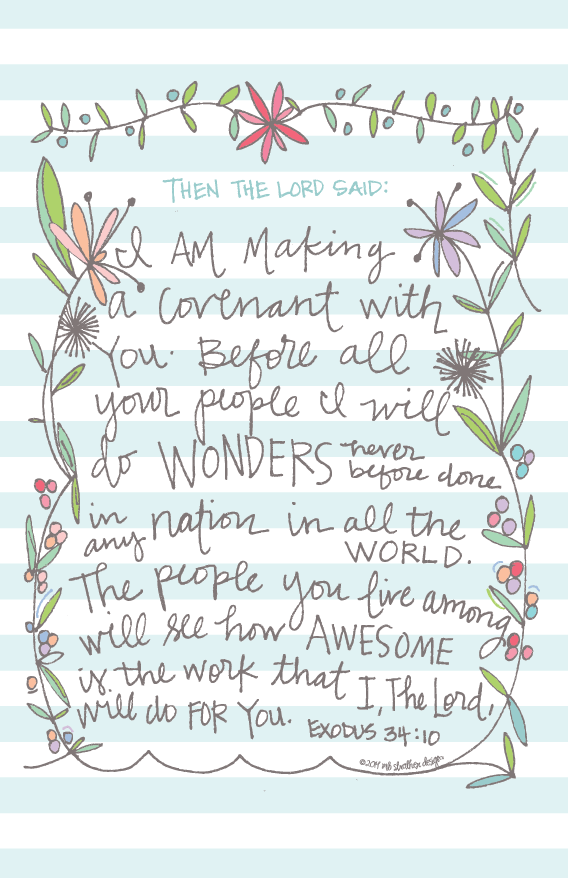 THEN THE LORD SAID:
I AM Making
a Covenant with
You. Before all
your people I will
do WONDERS never before done
in any nation in all the
WORLD.
The people you live among
will see how AWESOME
is the work that I, The Lord,
will do FOR YOU.
EXODUS 34:10
©2014 mb strather design